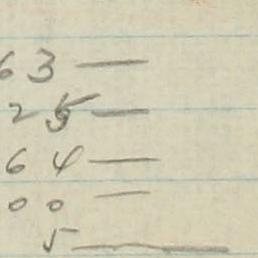 63 —
25 —
64 —
00 —
5 —